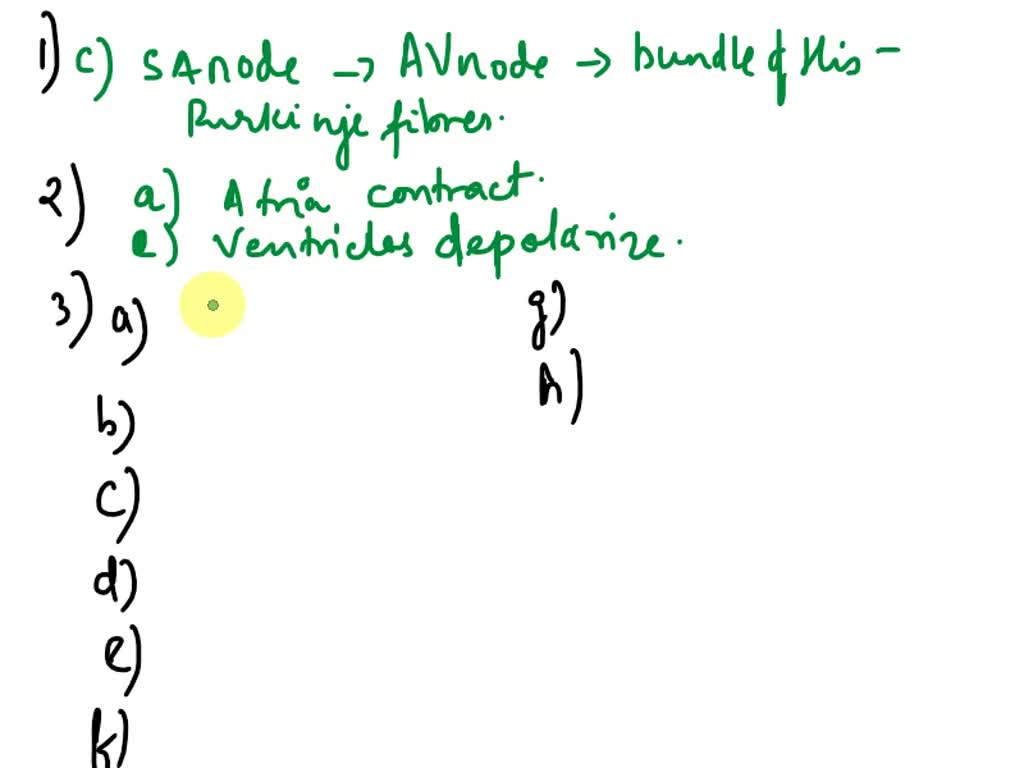 1) c) SA node → AV node → bundle of His -
Purkinje fibres.
2) a) Atria contract.
e) Ventricles depolarize.
3) a) g)
b) h)
c)
d)
e)
f)